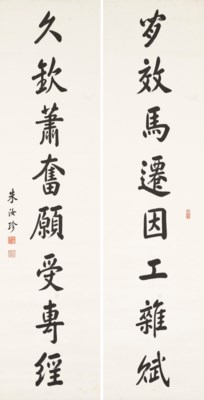 效馬遷因工雜賦
久欽蕭奮願受專經
朱汝珍